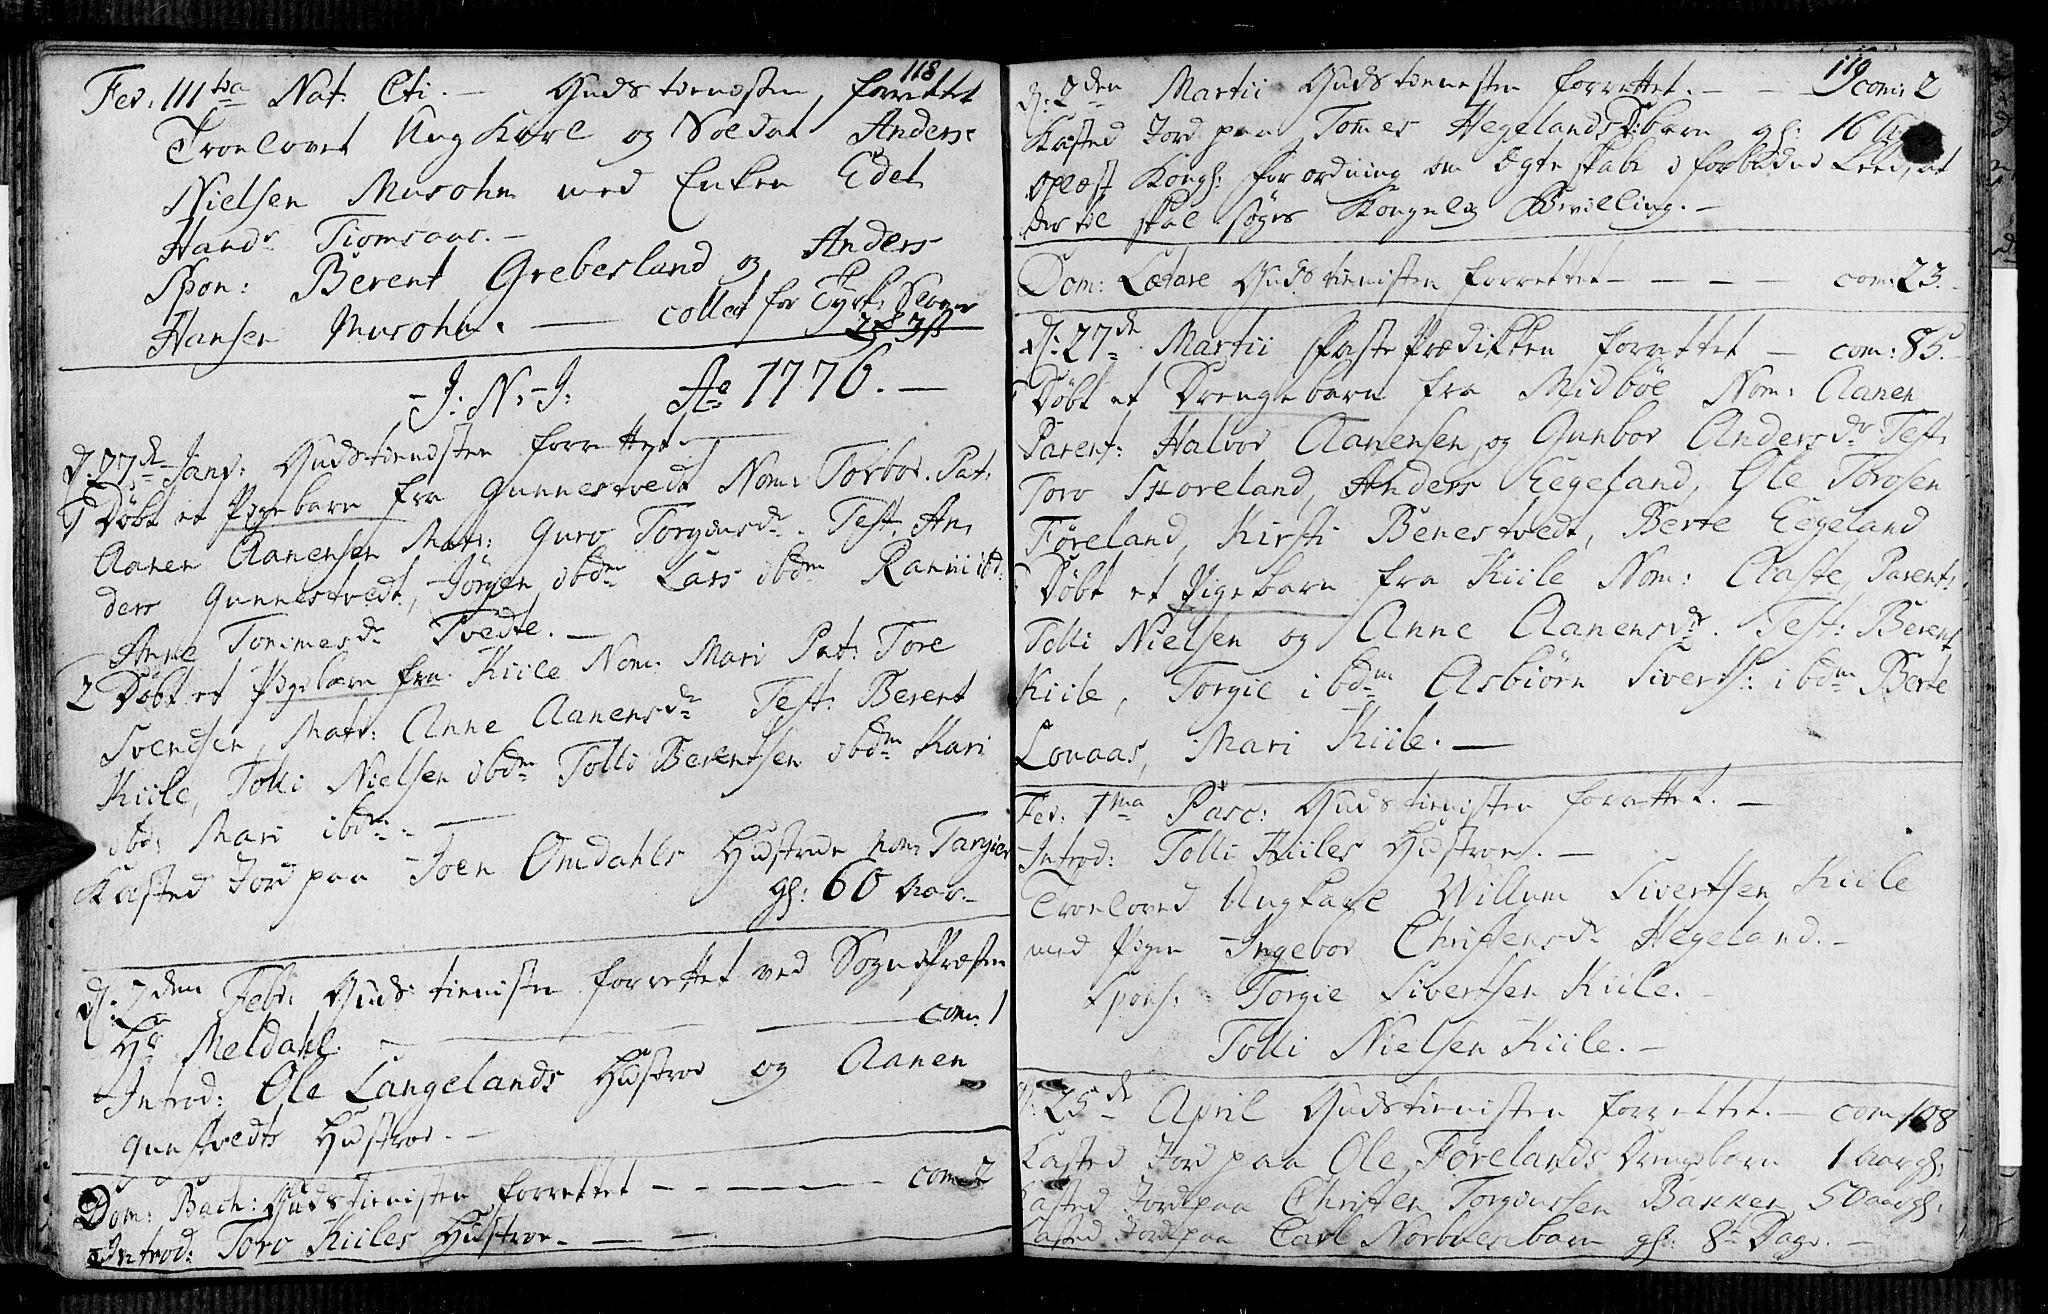 118
Fer: III tia Nat: Cti. — Guds tienesten forrettet
Troelovet Ung Karl og Soldat Anders
Nielsen Musohn med Enken Edel
Hansdr Tiomsaas. —
Spon: Berent Grebesland og Anders
Hansen Musohn. — collect for Tyrk: Slaver
J: N: J: Ao 1776. —
d: 27de Janv: Gudstienesten forrettet. —
1 Døbt et Pigebarn fra Gunnestvedt Nom: Torbor. Pat:
Aanen Aanensen Matr: Guro Torgiensdr. Test: An,
ders Gunnestvedt, Jørgen ibdm Lars ibdm Ranni ibd:
Anne Tommesdr Tvedte. —
2 Døbt et Pigebarn fra Kiile Nom: Mari Pat: Tore
Svendsen, Matr: Anne Aanensdr Test: Berent
Kiile, Tolli Nielsen ibdm Tolli Berentsen ibdm Kari
ibd: Mari ibdm. —
Kasted Jord paa Joen Omdahls Hustrue nom: Targier
gl: 60 Aar. —
d: 2den Febr: Guds tienisten forrettet ved Sogne Præsten
Hr Meldahl. — com: 1
Introd: Ole Langelands Hustroe og Aanen
Gunstvedts Hustroe. —
Dom: Bach: Gudstienisten forrettet — — — com: 2
Introd: Toro Kiiles Hustroe. — —
119
d: 2den Martii Guds tienesten forrettet. — — com: 2
Kasted Jord paa Tomes Hegelands barn gl: 16
Oplæst Kongl: forordning om Ægteskabe i forbudne Leed, at
der til skal søges Kongelig Bevilling. —
Dom: Lætare Guds tienisten forrettet — — — — com: 23. —
d: 27de Martii Faste Prædikken forrettet — com: 85. —
Døbt et Drengebarn fra Midbøe Nom: Aanen
Parent: Halvor Aanensen og Gunbor Andersdr Test:
Toro Skoreland, Anders Eegeland, Ole Torosen
Føreland, Kirsti Benestvedt, Berte Eegeland
Døbt et Pigebarn fra Kiile Nom: Aaste, Parent:
Tolli Nielsen og Anne Aanensdr. Test: Berent
Kiile, Torgie ibdm Asbiørn Siverts: ibdm Berte
Louaas, Mari Kiile. —
Fer: 1ma Pasc: Guds tienisten forrettet. —
Introd: Tolli Kiiles Hustroe. —
Troeloved Ungkarl Willum Sivertsen Kiile
med Pigen Ingebor Christensdr Hegeland. —
Spons: Torgie Sivertsen Kiile. —
Tolli Nielsen Kiile. —
d: 25de April Gudstienisten forrettet. — com: 108
Kasted Jord paa Ole Førelands Drengebarn 1 Aar gl:
Kasted Jord paa Christen Torgiussen Bakken 50 aar gl:
Kasted Jord paa Carl Norbuens barn gl: 8 Dage. —